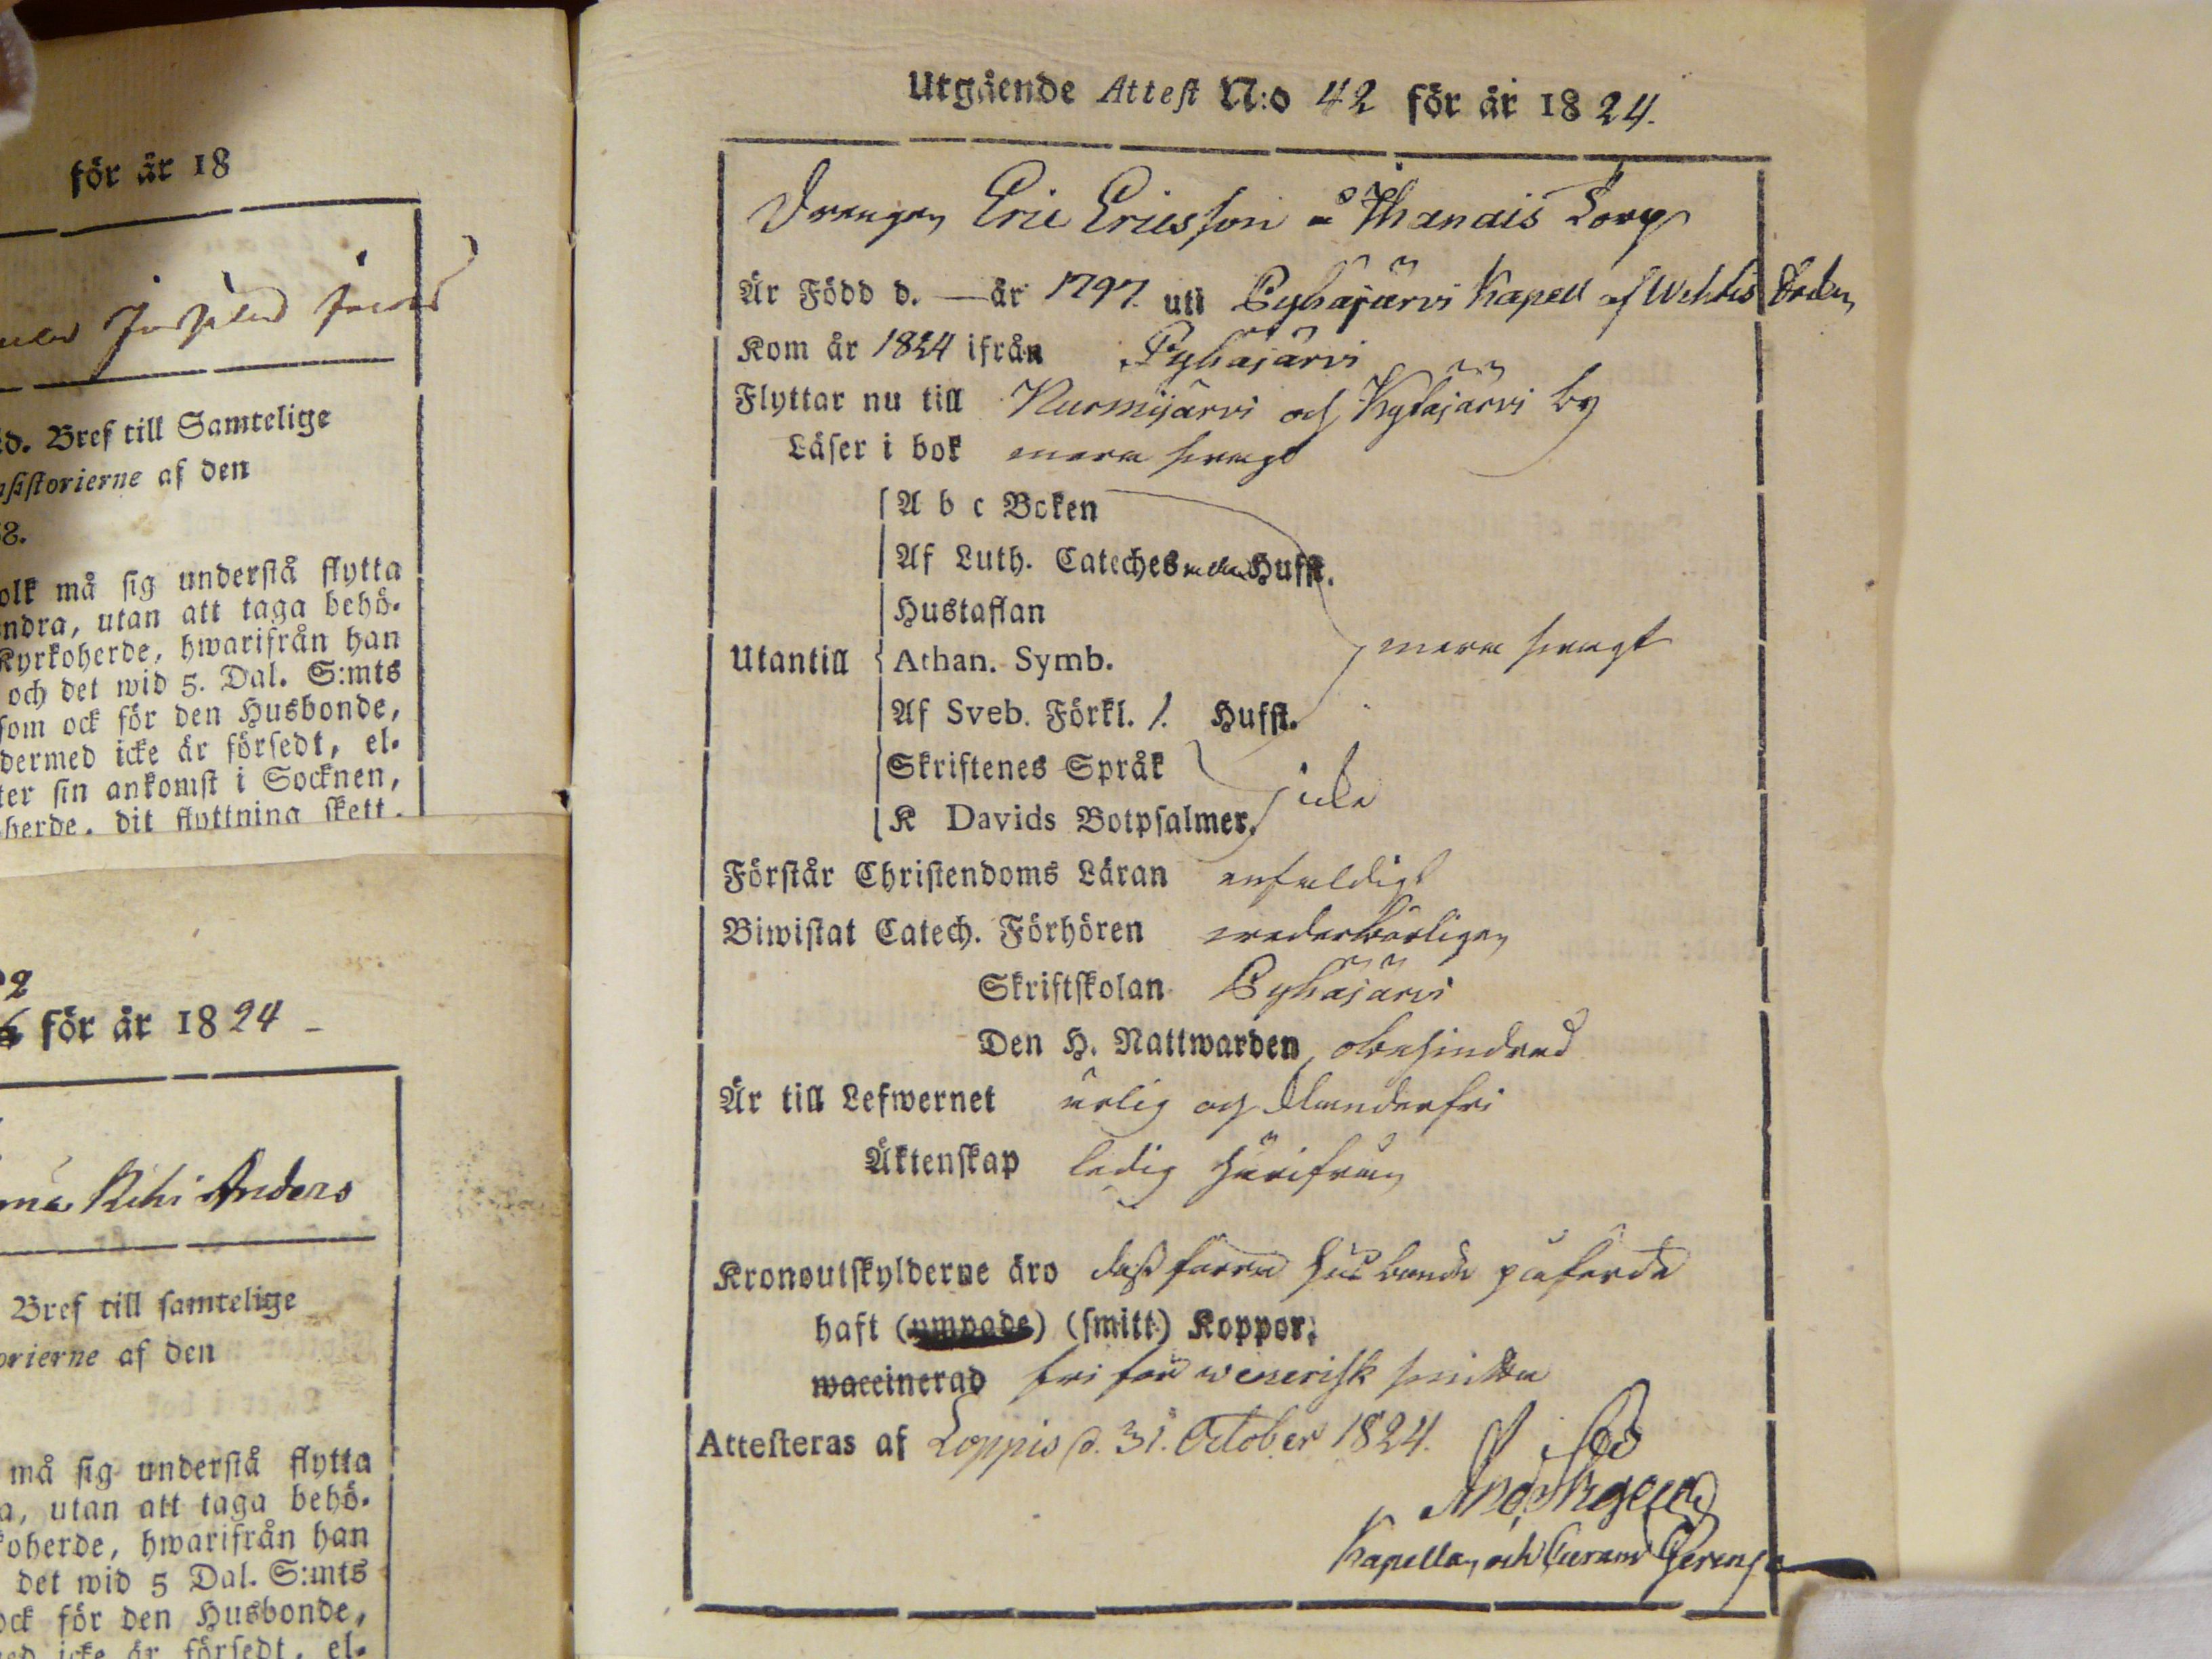 för år 18
d. Bref till Samtelige
ſiſtorierne af den
8.
olk må ſig underſtå flytta
ndra, utan att taga behö-
Kyrkoherde, hwarifrån han
och det wid 5. Dal. S:mts
ſom ock för den Husbonde,
dermed icke är förſedt, el-
ter ſin ankomſt i Socknen,
herde, dit flyttning ſkett.
för år 1824
Rihi Anders
Bref till ſamtelige
orierne af den
må ſig underſtå flytta
a, utan att taga behö-
koherde, hwarifrån han
det wid 5 Dal. S:mts
ock för den Husbonde,
ed icke är förſedt, el-
Utgående Atteſt N:o 42 för år 1824.
Drengen Eric Ericsſon å Torp
Är Född d. — år 1797. uti Pyhäjärvi Kapell af Wichtis Sockn
Kom år 1824 ifrån Pyhäjärvi
Flyttar nu till Nurmijärvi och Kytäjärvi by
Läſer i bok mera ſvagt
A b c Boken
Af Luth. Cateches Hufſt.
Hustaflan
Utantill Athan. Symb. mera ſvagt
Af Sveb. Förkl. 1. Hufſt.
Skriftenes Språk
K Davids Botpſalmer. icke
Förſtår Chriſtendoms Läran enfaldigt
Biwiſtat Catech. Förhören wederbörligen
Skriftſkolan Pyhäjärvi
Den H. Nattwarden obehindrad
Är till Lefwernet ärlig och klanderfri
Äktenſkap ledig härifrån
Kronoutſkylderne äro deſs förra husbonde påförde
haft (ympade) (ſmitt) Koppor;
waccinerad fri från weneriſk ſmitta
Atteſteras af Loppis d. 31. October 1824.
Kapellan och